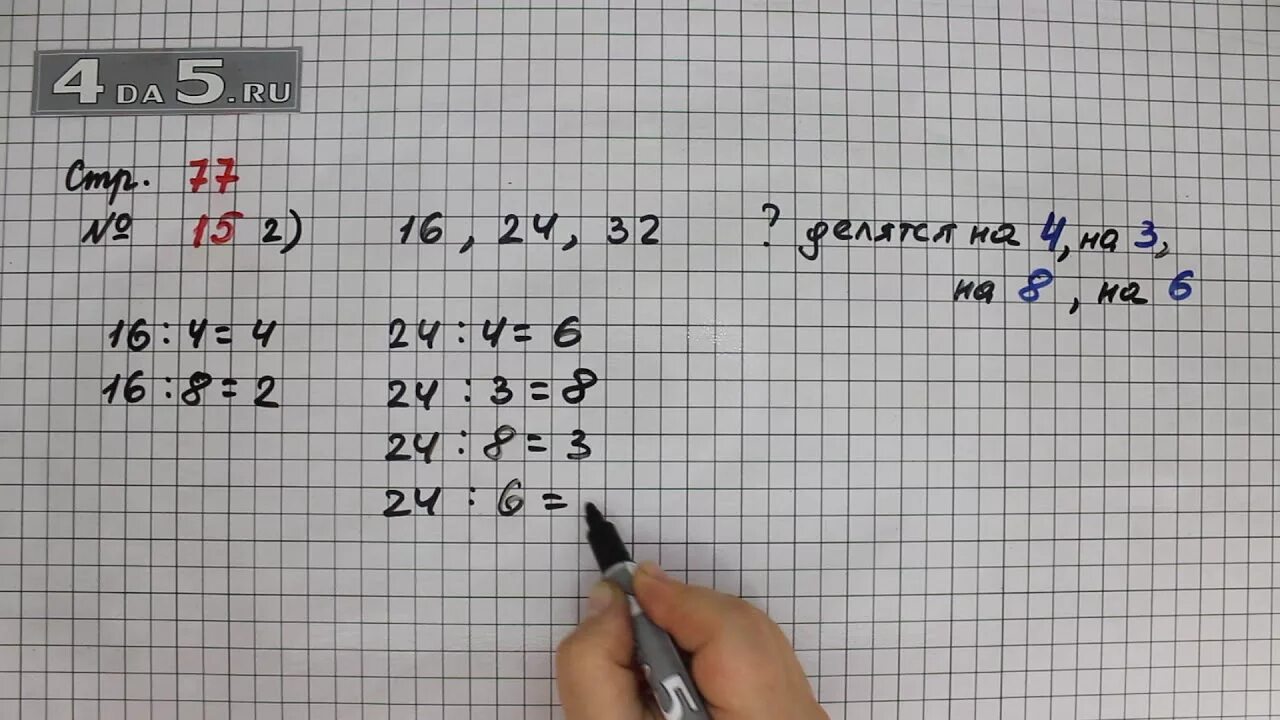 4 DA 5.RU
Стр. 77
№ 15 2) 16, 24, 32 ? делятся на 4, на 3,
на 8, на 6
16 : 4 = 4 24 : 4 = 6
16 : 8 = 2 24 : 3 = 8
24 : 8 = 3
24 : 6 =
5